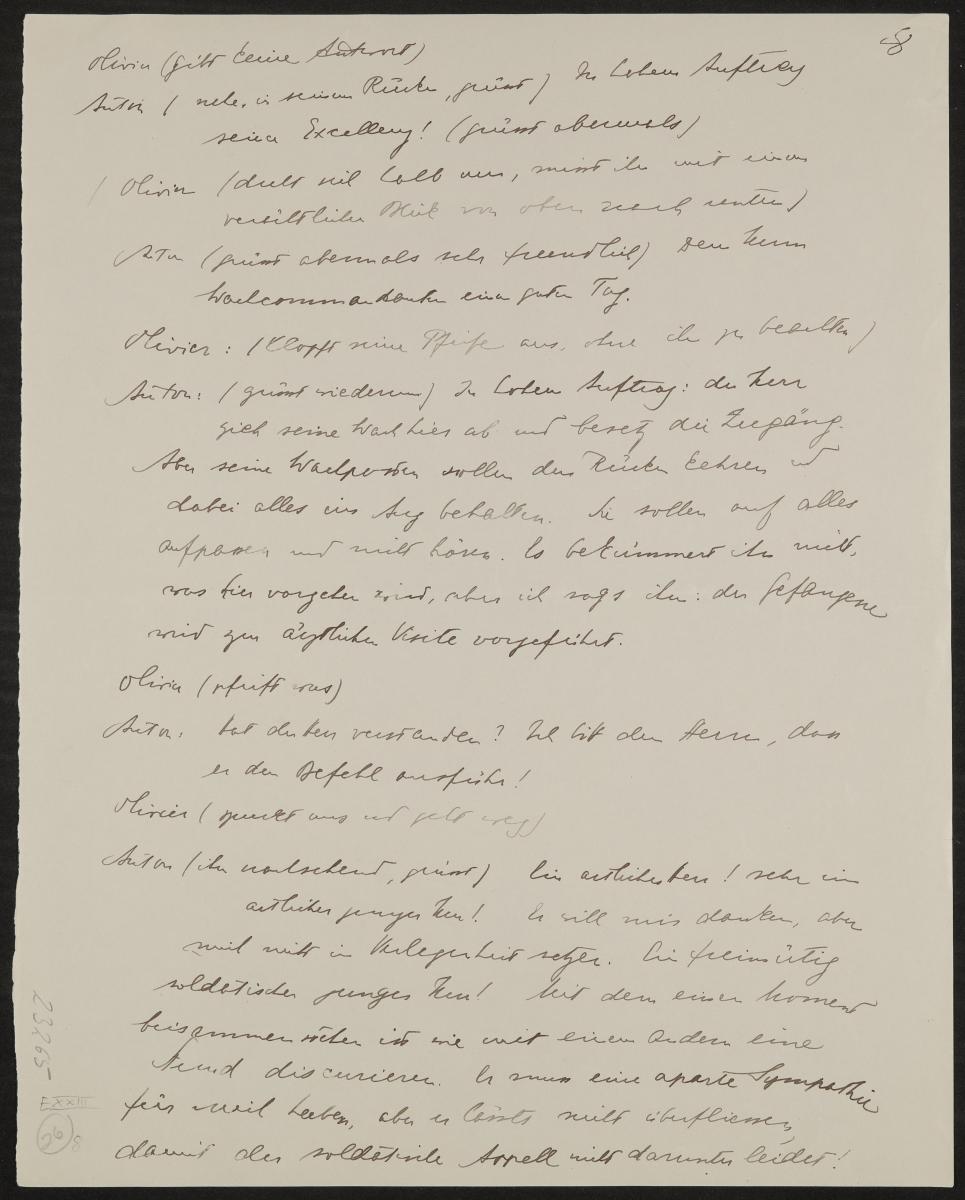 8
Olivier (gibt keine Antwort)
Anton (nahe, in seinem Rücken, grüsst) In hohem Auftrag
seiner Excellenz! (grüsst abermals)
Olivier (dreht sich halb um, misst ihn mit einem
verächtlichen Blick von oben nach unten)
Anton (grüsst abermals sehr freundlich) Dem Herrn
Wachcommandanten einen guten Tag.
Olivier: (klopft seine Pfeife aus, ohne ihn zu beachten)
Anton: (grüsst wiederum) In hohem Auftrag: der Herr
zieh seine Wach hier ab und besetz die Zugäng.
Aber seine Wachposten sollen den Rücken kehren und
dabei alles ins Aug behalten. Sie sollen auf alles
aufpassen und nicht hören. Es bekümmert ihn nicht,
was hier vorgehen wird, aber ich sags ihm: der Gefangene
wird zur ärztlichen Visite vorgeführt.
Olivier (pfeift was)
Anton: hat der Herr verstanden? Ich bitt den Herrn, dass
er den Befehl ausführ!
Olivier (spuckt aus und geht weg)
Anton (ihm nachsehend, grüsst) Ein artlicher Herr! sehr ein
artlicher junger Herr! Er will mir danken, aber
mich nicht in Verlegenheit setzen. Ein freimütig
soldatischer junger Herr! Mit dem einen Moment
beisammenstehen ist wie mit einem andern eine
Stund discurieren. Er muss eine aparte Sympathie
für mich haben, aber er lässts nicht überfliessen,
damit der soldatische Appell nicht darunter leidet!
23265
E XXIII
26
8